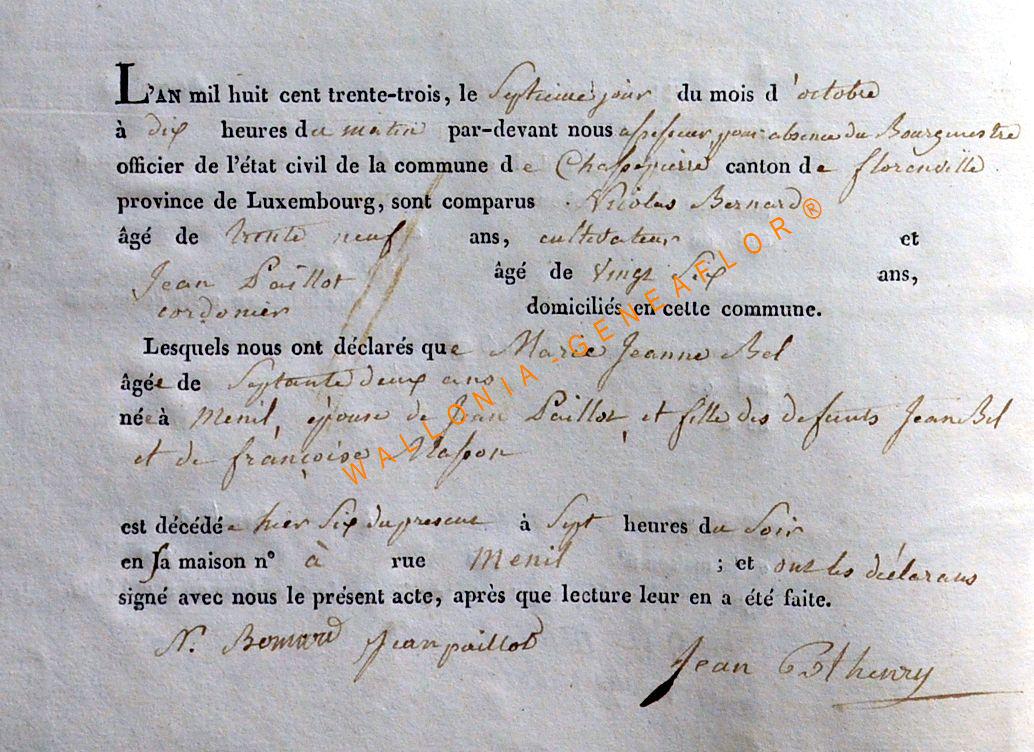 L'AN mil huit cent trente-trois, le Septieme jour du mois d'octobre
à dix heures du matin par-devant nous assesseur pour absence du Bourgmestre
officier de l'état civil de la commune de Chassepierre canton de florenville
province de Luxembourg, sont comparus Nicolas Bernard
âgé de trente neuf ans, cultivateur et
Jean Paillot âgé de vingt Six ans,
cordonier domiciliés en cette commune.
Lesquels nous ont déclarés que Marie Jeanne Bel
âgée de Septante deux ans
née à Menil, épouse de Jean Paillot, et fille des defunts Jean Bel
et de françoise Masson
est décédée hier Six du present à Sept heures du Soir
en sa maison n° à rue Menil ; et ont les déclarans
signé avec nous le présent acte, après que lecture leur en a été faite.
N. Bernard Jean paillot
Jean
WALLONIA-GENEAFLOR®